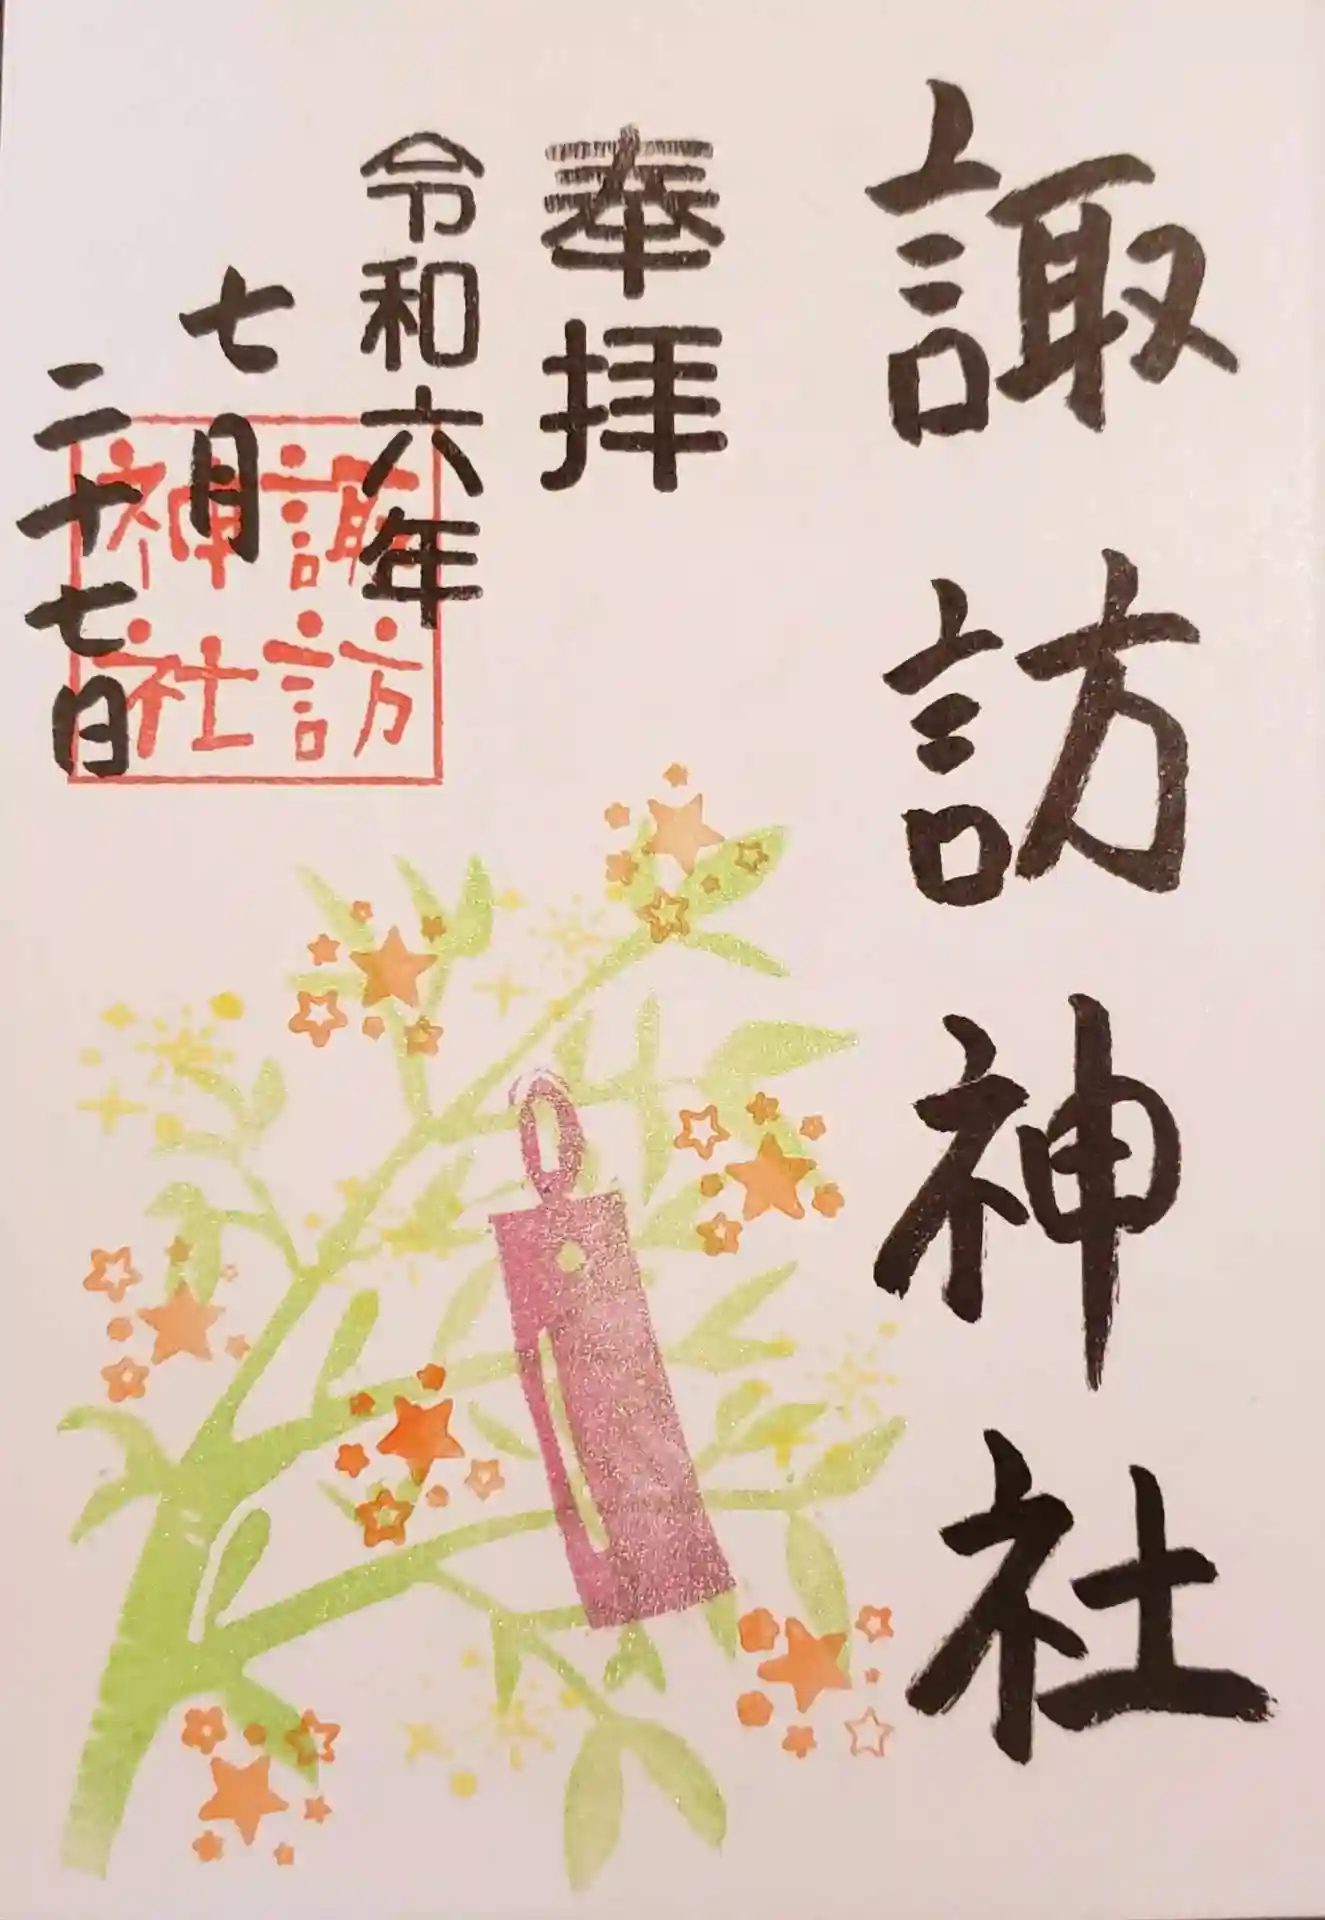 諏訪神社
奉拝
令和六年
七月
二十七日
諏訪
神社